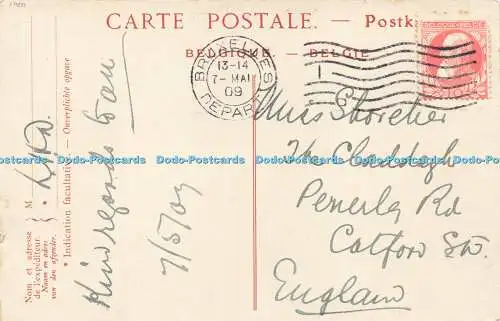 CARTE POSTALE. — Postk
BELGIQUE. — BELGIE
BRUXELLES
13-14
7-MAI
09
DEPART
BELGIQUE-BELGIË
Miss
The Claddagh
Penerley Rd
Catford SE.
England
Kind regards from
7/5/09
Nom et adresse
de l'expéditeur.
Naam en adres
van den afzender.
M
* Indication facultative. — Onverplichte opgave
Dodo-Postcards Dodo-Postcards Dodo-Postcards Dodo-Postcards Dodo-Postcards Dodo-Postcards